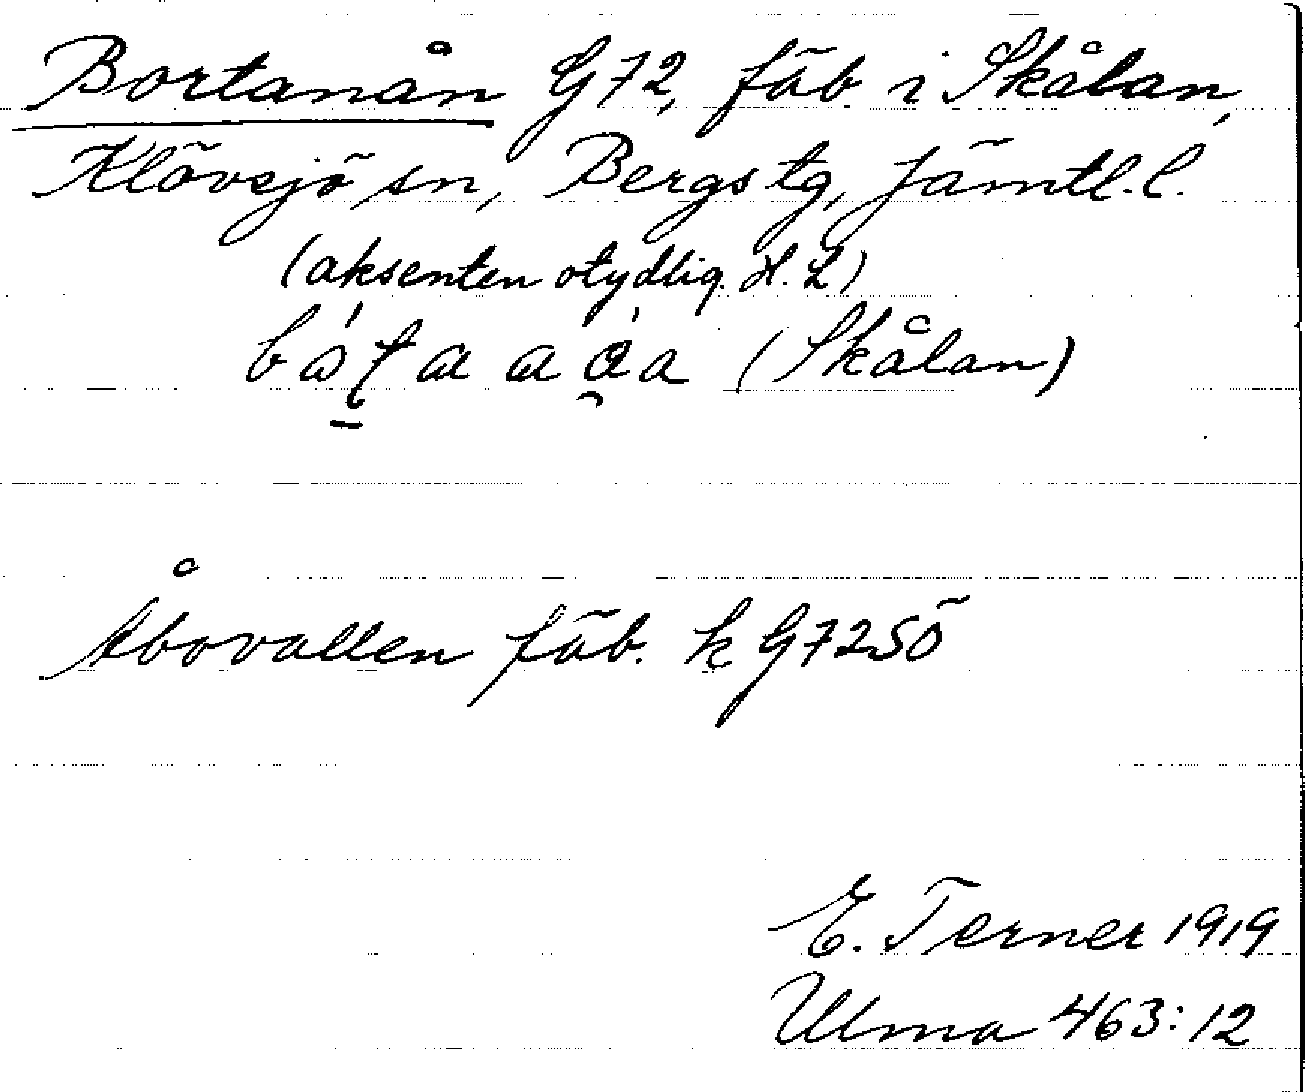 Bortanån G72, fäb. i Skålan,
Klövsjö sn, Bergs tg, Jämtl. l.
(aksenten otydlig. H. L)
(Skålan)
Åbovallen fäb. k G72SÖ
E. Terner 1919
Ulma 463:12